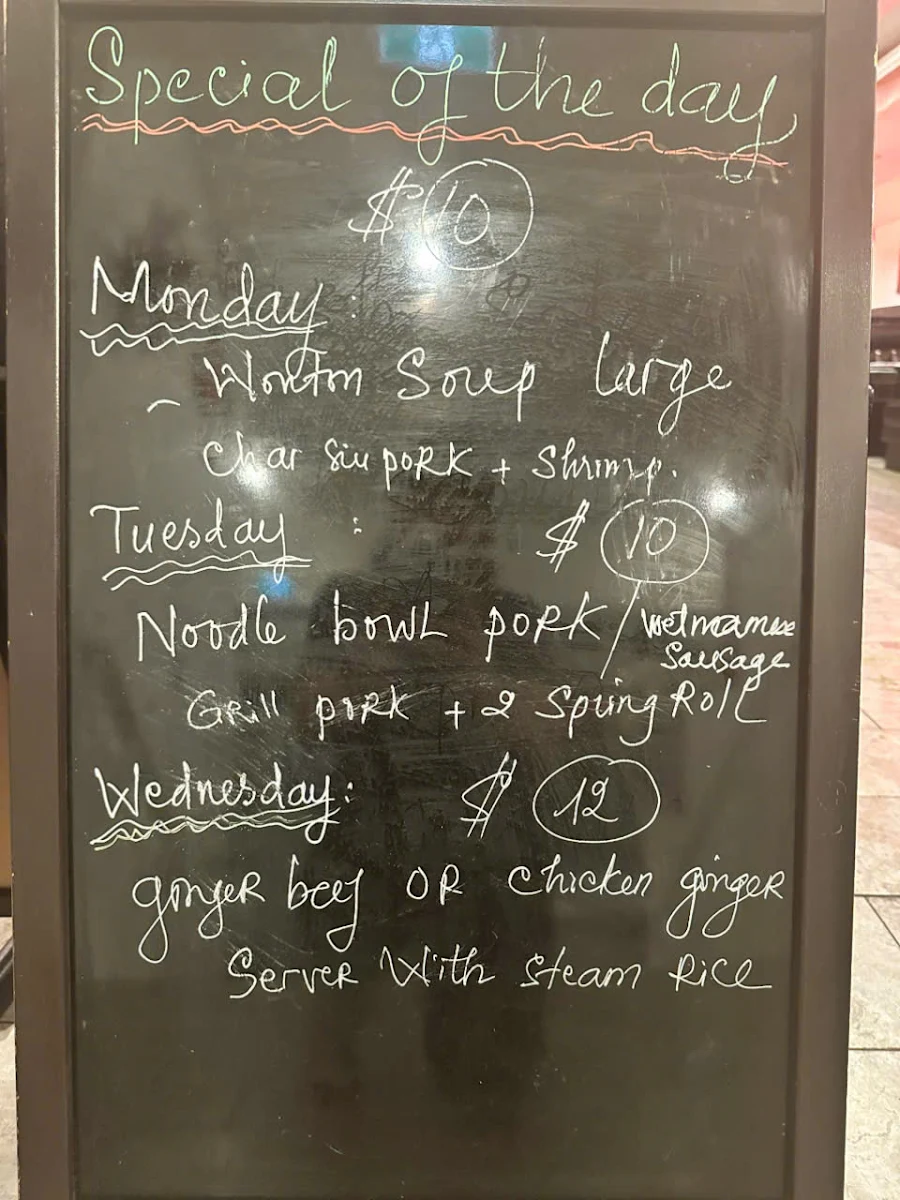 Special of the day
$ 10
Monday:
- Wonton Soup large
Char Siu poRK + Shrimp.
Tuesday : $ 10
Noodle bowL poRK / Vietnamese Sausage
GRill poRK + 2 Spring RolL
Wednesday: $ 12
gingeR beef OR chicken gingeR
ServeR With Steam Rice